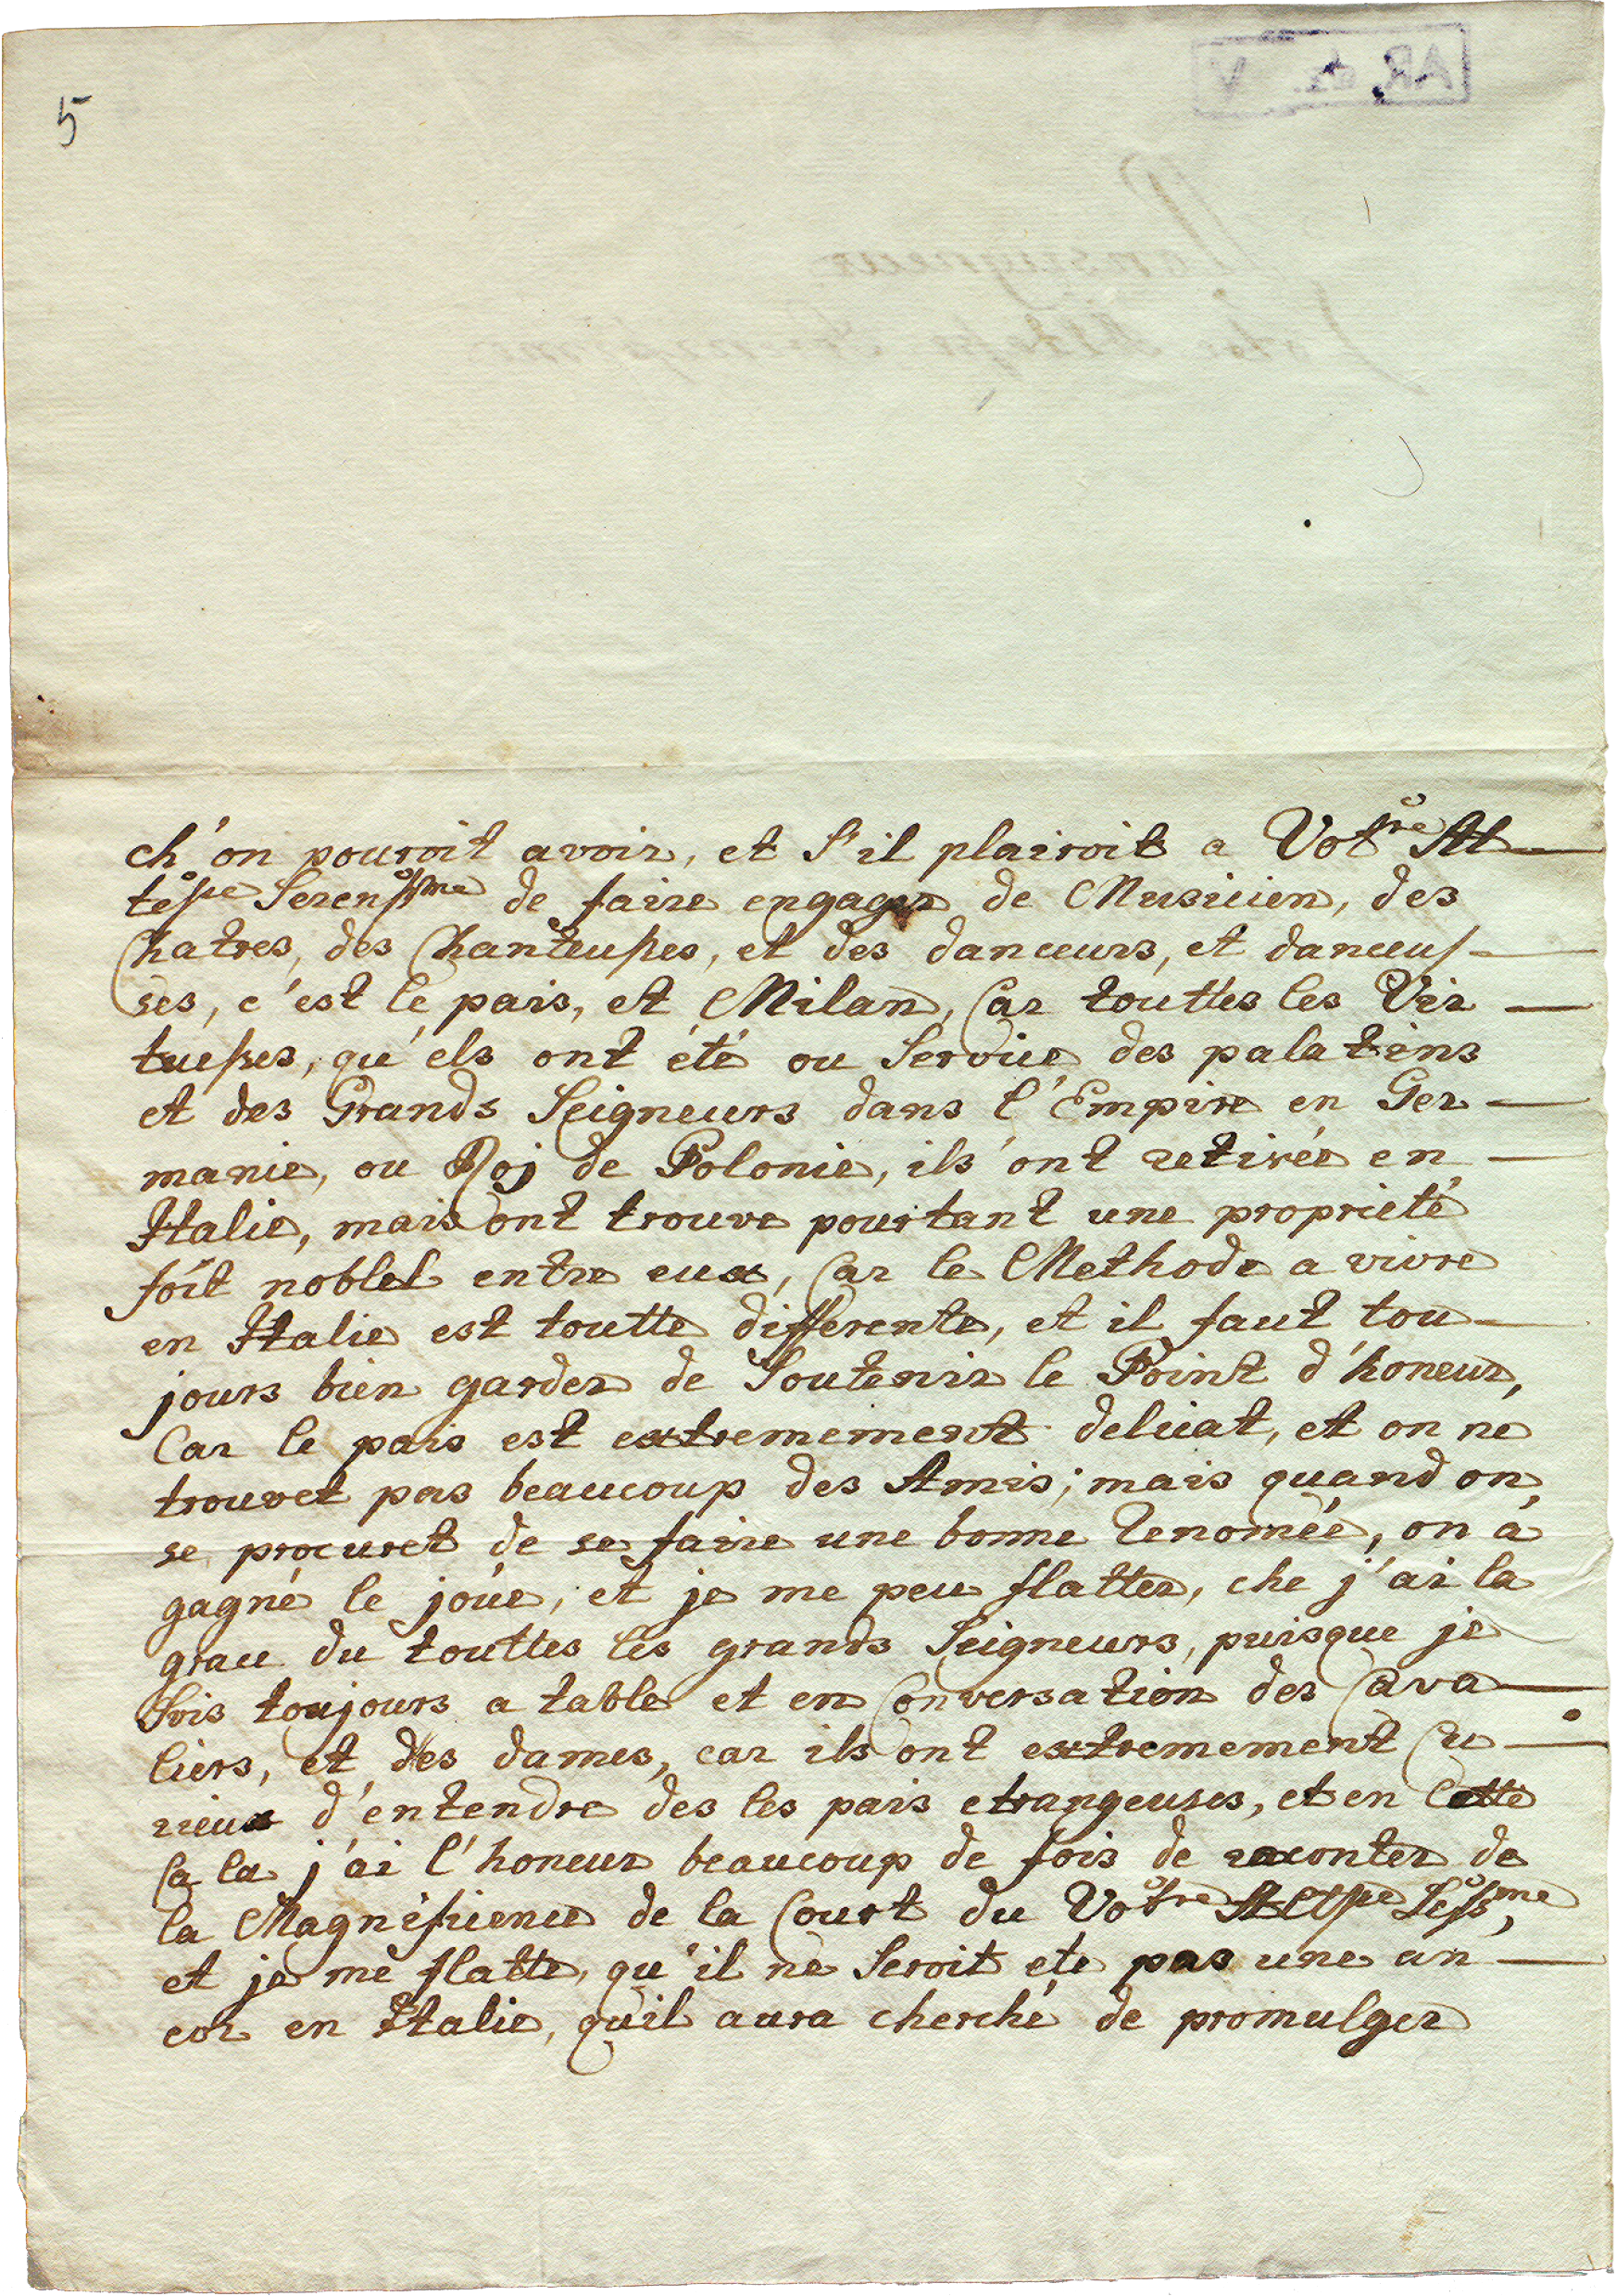 5
AR dz. V
Monseigneur
ch'on pouroit avoir, et s'il plairoit a Votre Al-
tesse Serenssme de faire engager de Musicien, des
Chatres, des Chanteusses, et des danceurs, et danceus-
ses, c'est le pais, et Milan, Car touttes les Vir-
tuesses, qu'els ont été ou Service des palatins
et des Grands Seigneurs dans l'Empire en Ger-
manie, ou Roj de Polonie, ils ont retirée en-
Italie, mais ont trouve pourtant une proprieté
foit noblel entre eux, Car le Methode a vivre
en Italie est toutte differente, et il faut tou-
jours bien garder de Soutenir le Point d'honeur,
Car le pais est extremement delicat, et on ne
trouvet pas beaucoup des Amis; mais quand on
se procuret de se faire une bonne renomée, on a
gagné le joüe, et je me peu flatter, che j'ai la
grace du touttes les grands Seigneurs, puisque je
Sois toujours a table et en Conversation des Cava-
liers, et des dames, car ils ont extremement Cu-
rieux d'entendre des les pais etrangeuses, et en Cette
Ca la j'ai l'honeur beaucoup de fois de raconter de
la Magnificence de la Court du Votre Altsse Sessme,
et je me flatte, qu'il ne Seroit ete pas une an-
cor en Italie, qu'il aura cherché de promulger